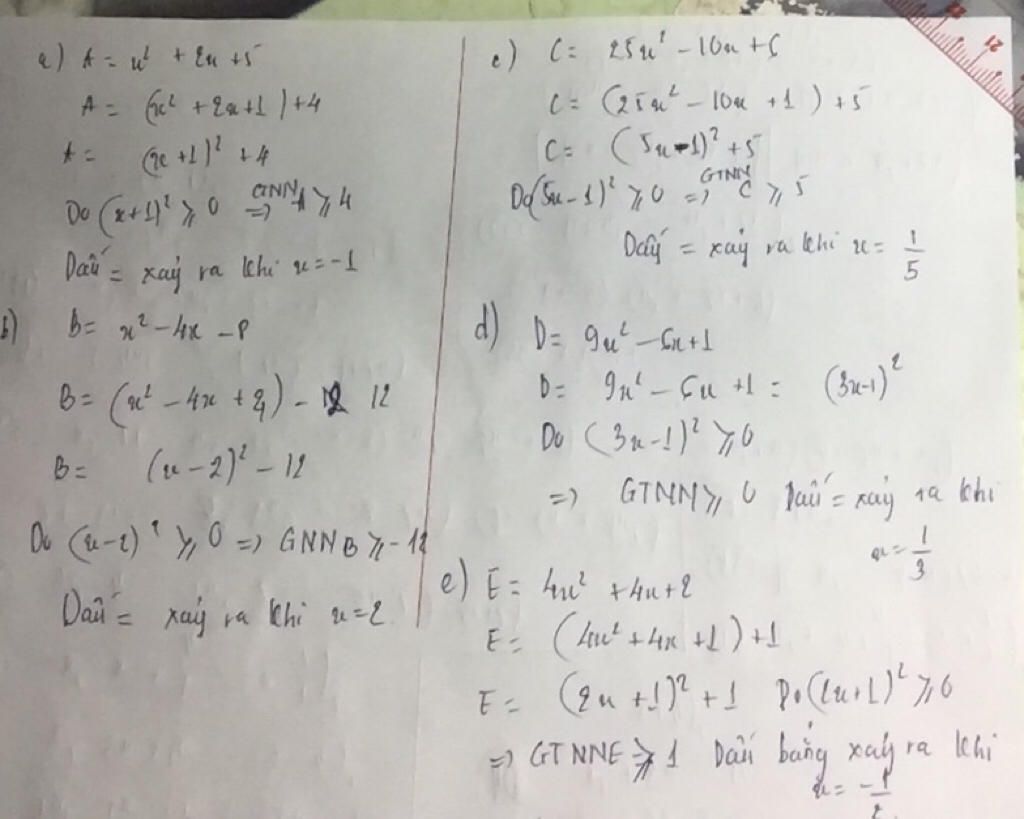 a) A = x² + 2x + 5
A = (x² + 2x + 1) + 4
A = (x + 1)² + 4
Do (x + 1)² ⩾ 0 => GTNN A ⩾ 4
Dấu = xảy ra khi x = -1
b) B = x² - 4x - 8
B = (x² - 4x + 4) - 12
B = (x - 2)² - 12
Do (x - 2)² ⩾ 0 => GNN B ⩾ -12
Dấu = xảy ra khi x = 2
c) C = 25x² - 10x + 6
C = (25x² - 10x + 1) + 5
C = (5x - 1)² + 5
Do (5x - 1)² ⩾ 0 => GTNN C ⩾ 5
Dấu = xảy ra khi x = 1/5
d) D = 9x² - 6x + 1
D = 9x² - 6x + 1 = (3x - 1)²
Do (3x - 1)² ⩾ 0
=> GTNN ⩾ 0 Dấu = xảy ra khi
x = 1/3
e) E = 4x² + 4x + 2
E = (4x² + 4x + 1) + 1
E = (2x + 1)² + 1 Do (2x + 1)² ⩾ 0
=> GTNN E ⩾ 1 Dấu bằng xảy ra khi
x = -1/2